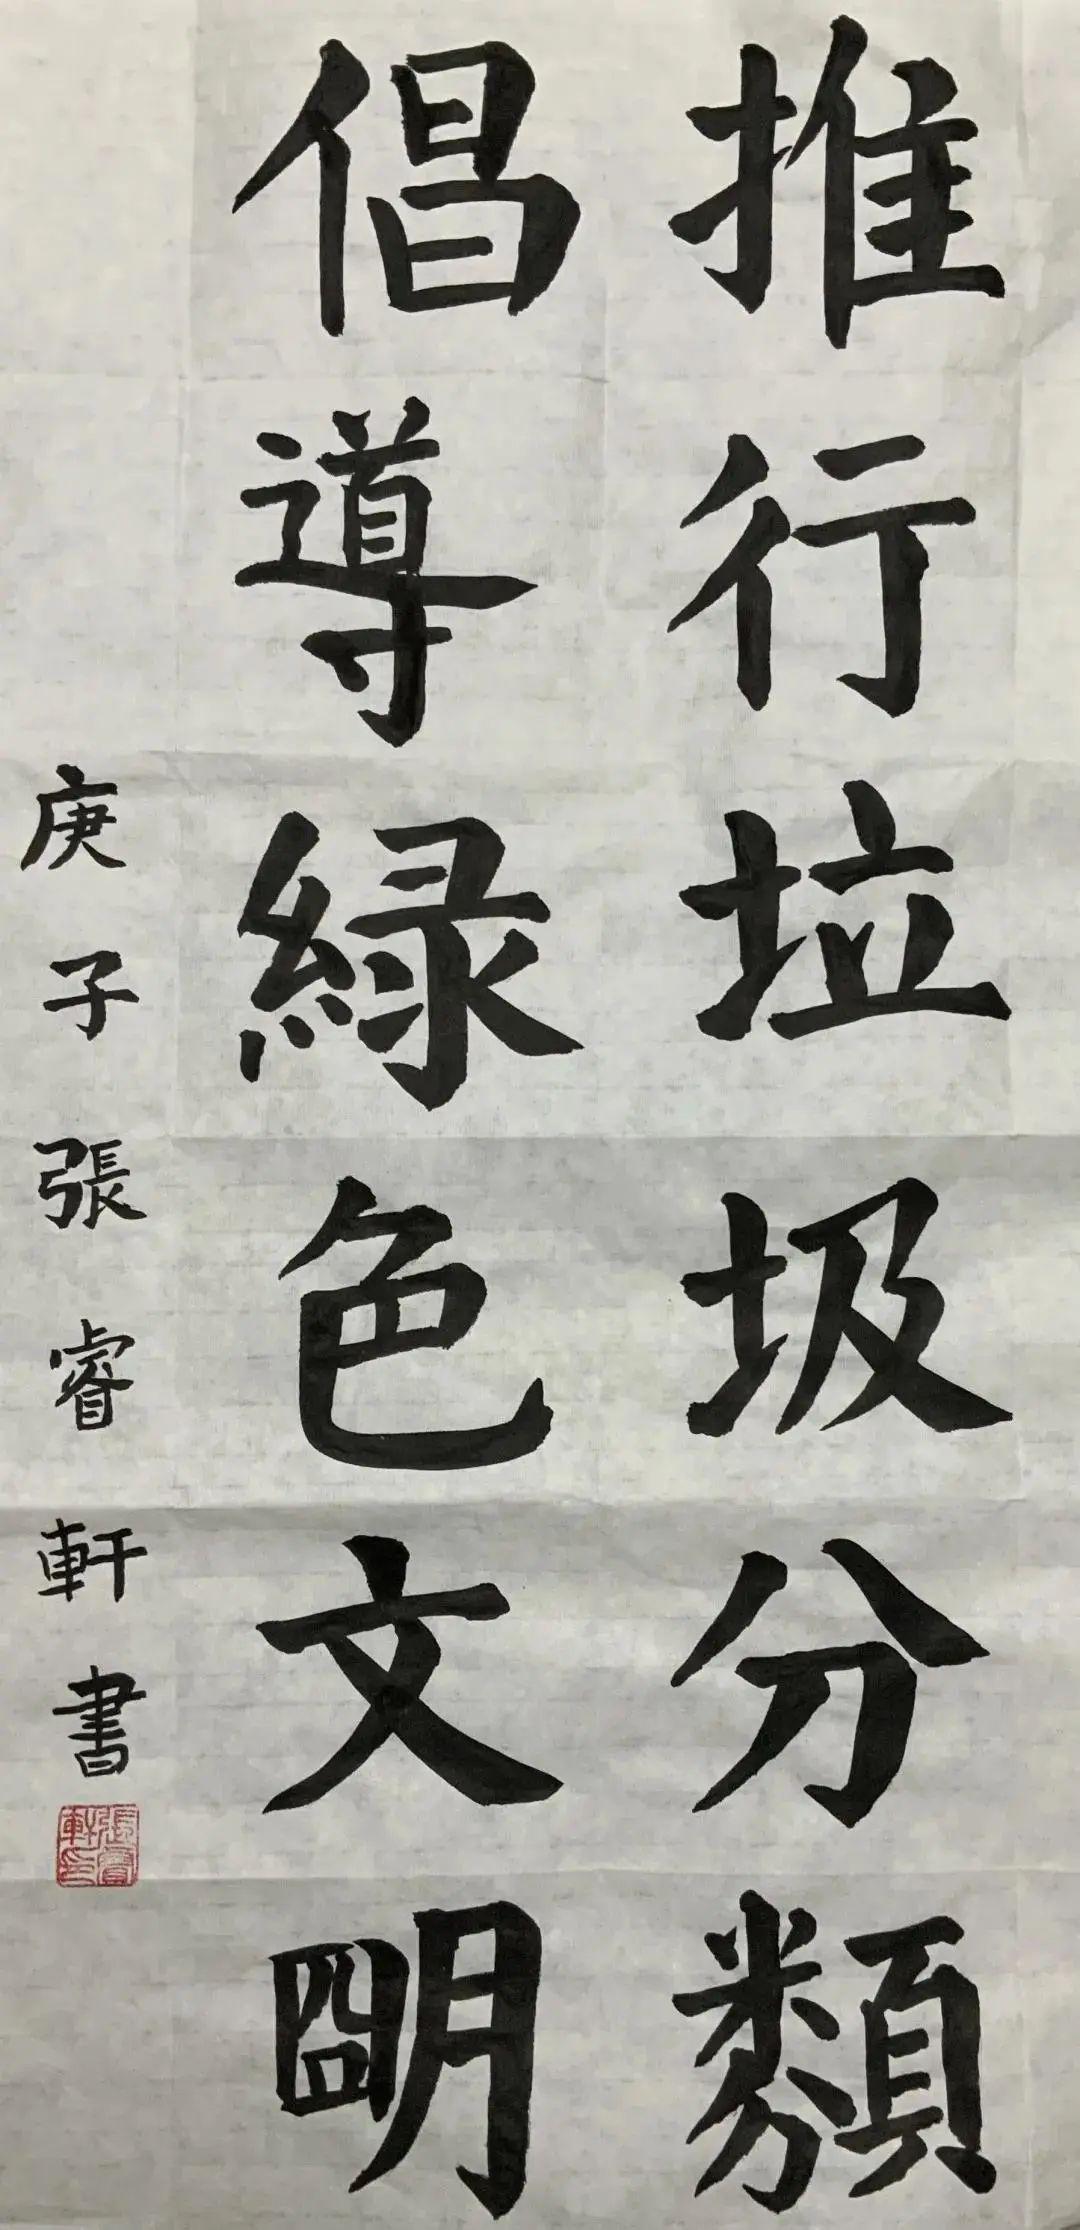 推行垃圾分類
倡導緑色文明
庚子張睿軒書
張睿軒印